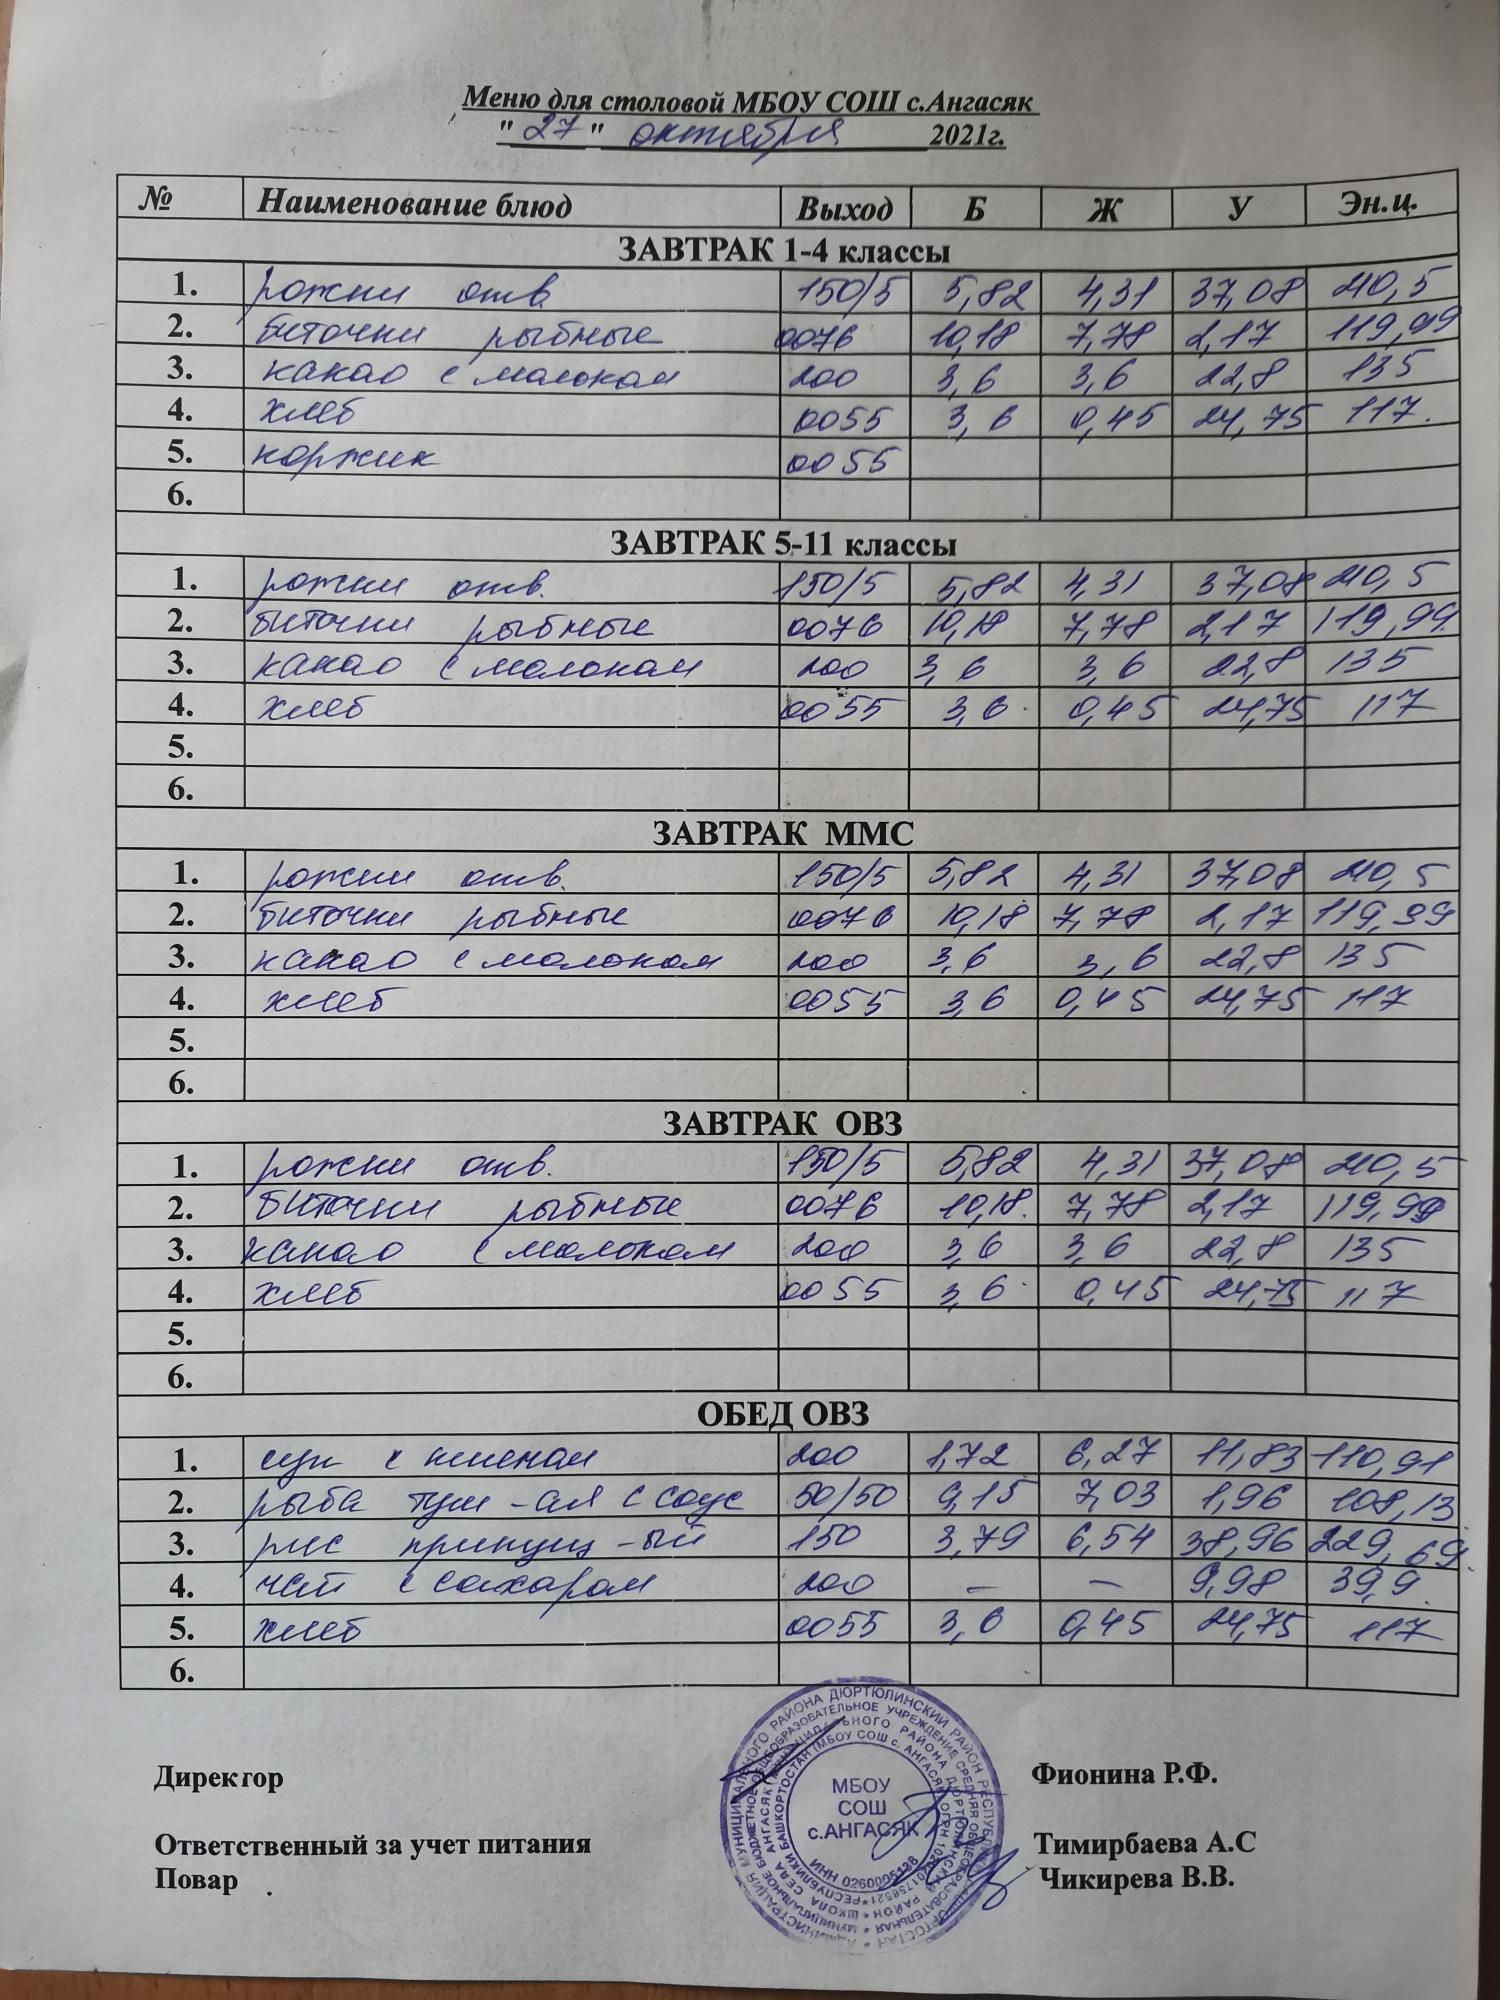 Меню для столовой МБОУ СОШ с.Ангасяк
"27" октября 2021г.
№ Наименование блюд Выход Б Ж У Эн.ц.
ЗАВТРАК 1-4 классы
1. рожки отв 150/5 5,82 4,31 37,08 210,5
2. биточки рыбные 0076 10,18 7,78 2,17 119,99
3. какао с молоком 200 3,6 3,6 22,8 135
4. хлеб 0055 3,6 0,45 24,75 117.
5. коржик 0055
6.
ЗАВТРАК 5-11 классы
1. рожки отв. 150/5 5,82 4,31 37,08 210,5
2. биточки рыбные 0076 10,18 7,78 2,17 119,99
3. какао с молоком 200 3,6 3,6 22,8 135
4. хлеб 0055 3,6 0,45 24,75 117
5.
6.
ЗАВТРАК ММС
1. рожки отв. 150/5 5,82 4,31 37,08 210,5
2. биточки рыбные 0076 10,18 7,78 2,17 119,99
3. какао с молоком 200 3,6 3,6 22,8 135
4. хлеб 0055 3,6 0,45 24,75 117
5.
6.
ЗАВТРАК ОВЗ
1. рожки отв. 150/5 5,82 4,31 37,08 210,5
2. биточки рыбные 0076 10,18. 7,78 2,17 119,99
3. какао с молоком 200 3,6 3,6 22,8 135
4. хлеб 0055 3,6 0,45 24,75 117
5.
6.
ОБЕД ОВЗ
1. суп с пшеном 200 1,72 6,27 11,83 110,91
2. рыба туш-ая с соус 50/50 9,15 7,03 1,96 108,13
3. рис припущ-ый 150 3,79 6,54 38,96 229,69.
4. чай с сахаром 200 – – 9,98 39,9.
5. хлеб 0055 3,6 0,45 24,75 117
6.
Директор Фионина Р.Ф.
МБОУ
СОШ
с.АНГАСЯК
ИНН 0260005138
Ответственный за учет питания Тимирбаева А.С
Повар Чикирева В.В.